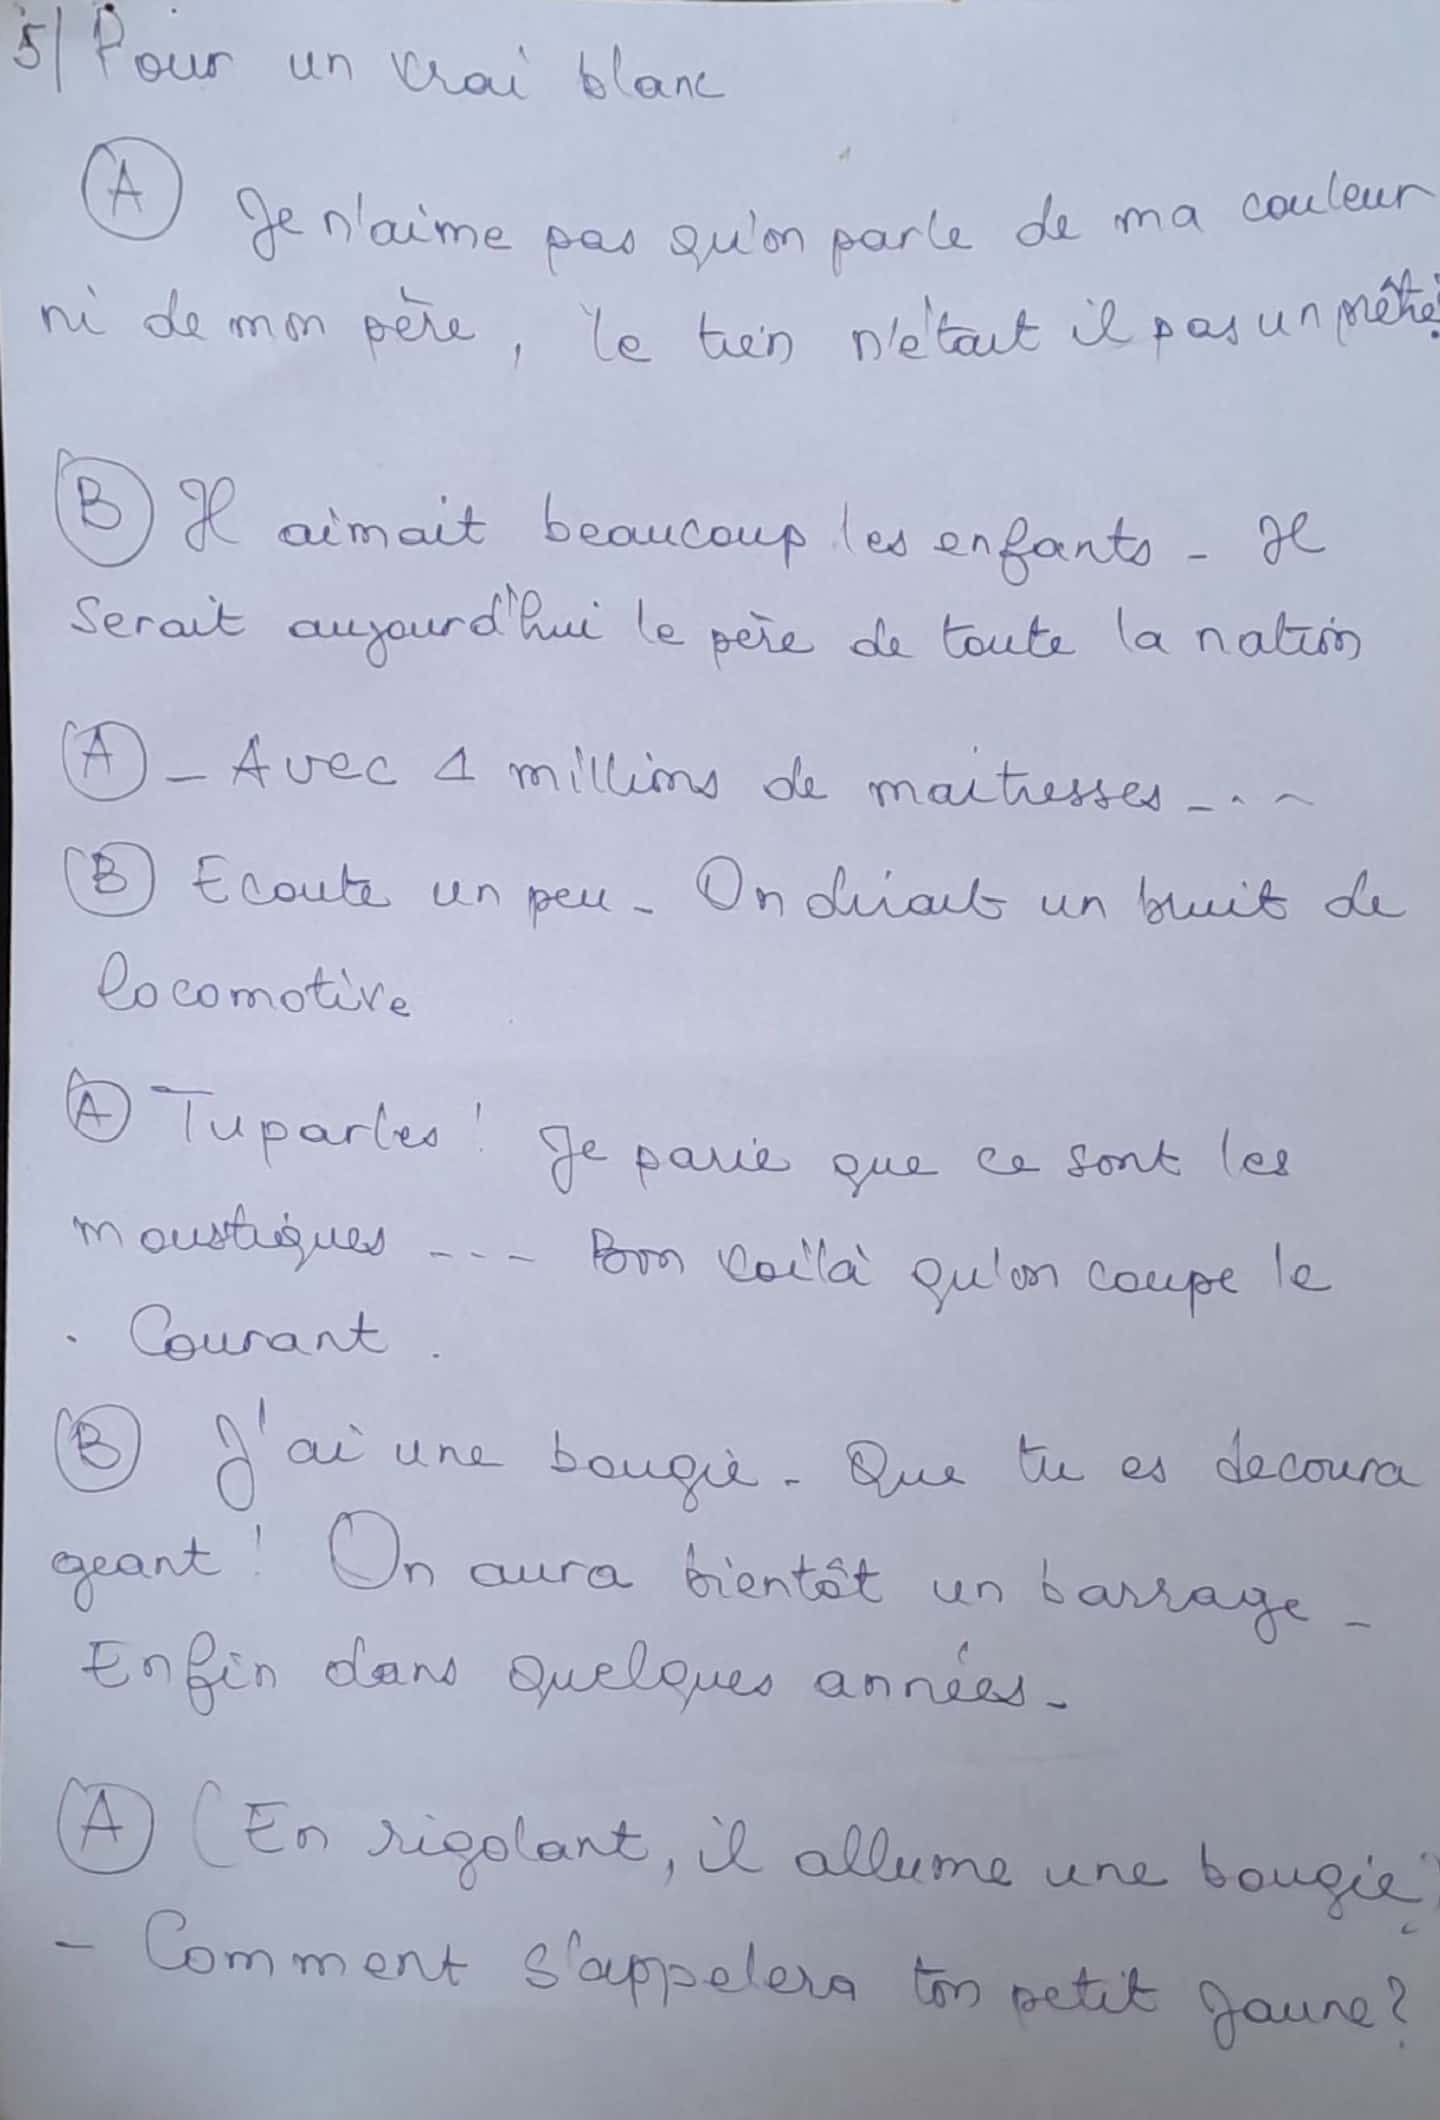 5/ Pour un vrai blanc
(A) Je n'aime pas qu'on parle de ma couleur
ni de mon père, le tien n'était il pas un prêtre?
(B) Il aimait beaucoup les enfants - Il
serait aujourd'hui le père de toute la nation
(A) - Avec 4 millions de maitresses - . -
(B) Ecoute un peu - On dirait un bruit de
locomotive
(A) Tu parles ! Je parie que ce sont les
moustiques - - - Bon voilà qu'on coupe le
. Courant .
(B) J'ai une bougie - Que tu es decoura
geant ! On aura bientôt un barrage -
Enfin dans quelques années -
(A) (En rigolant, il allume une bougie)
- Comment s'appelera ton petit jaune ?